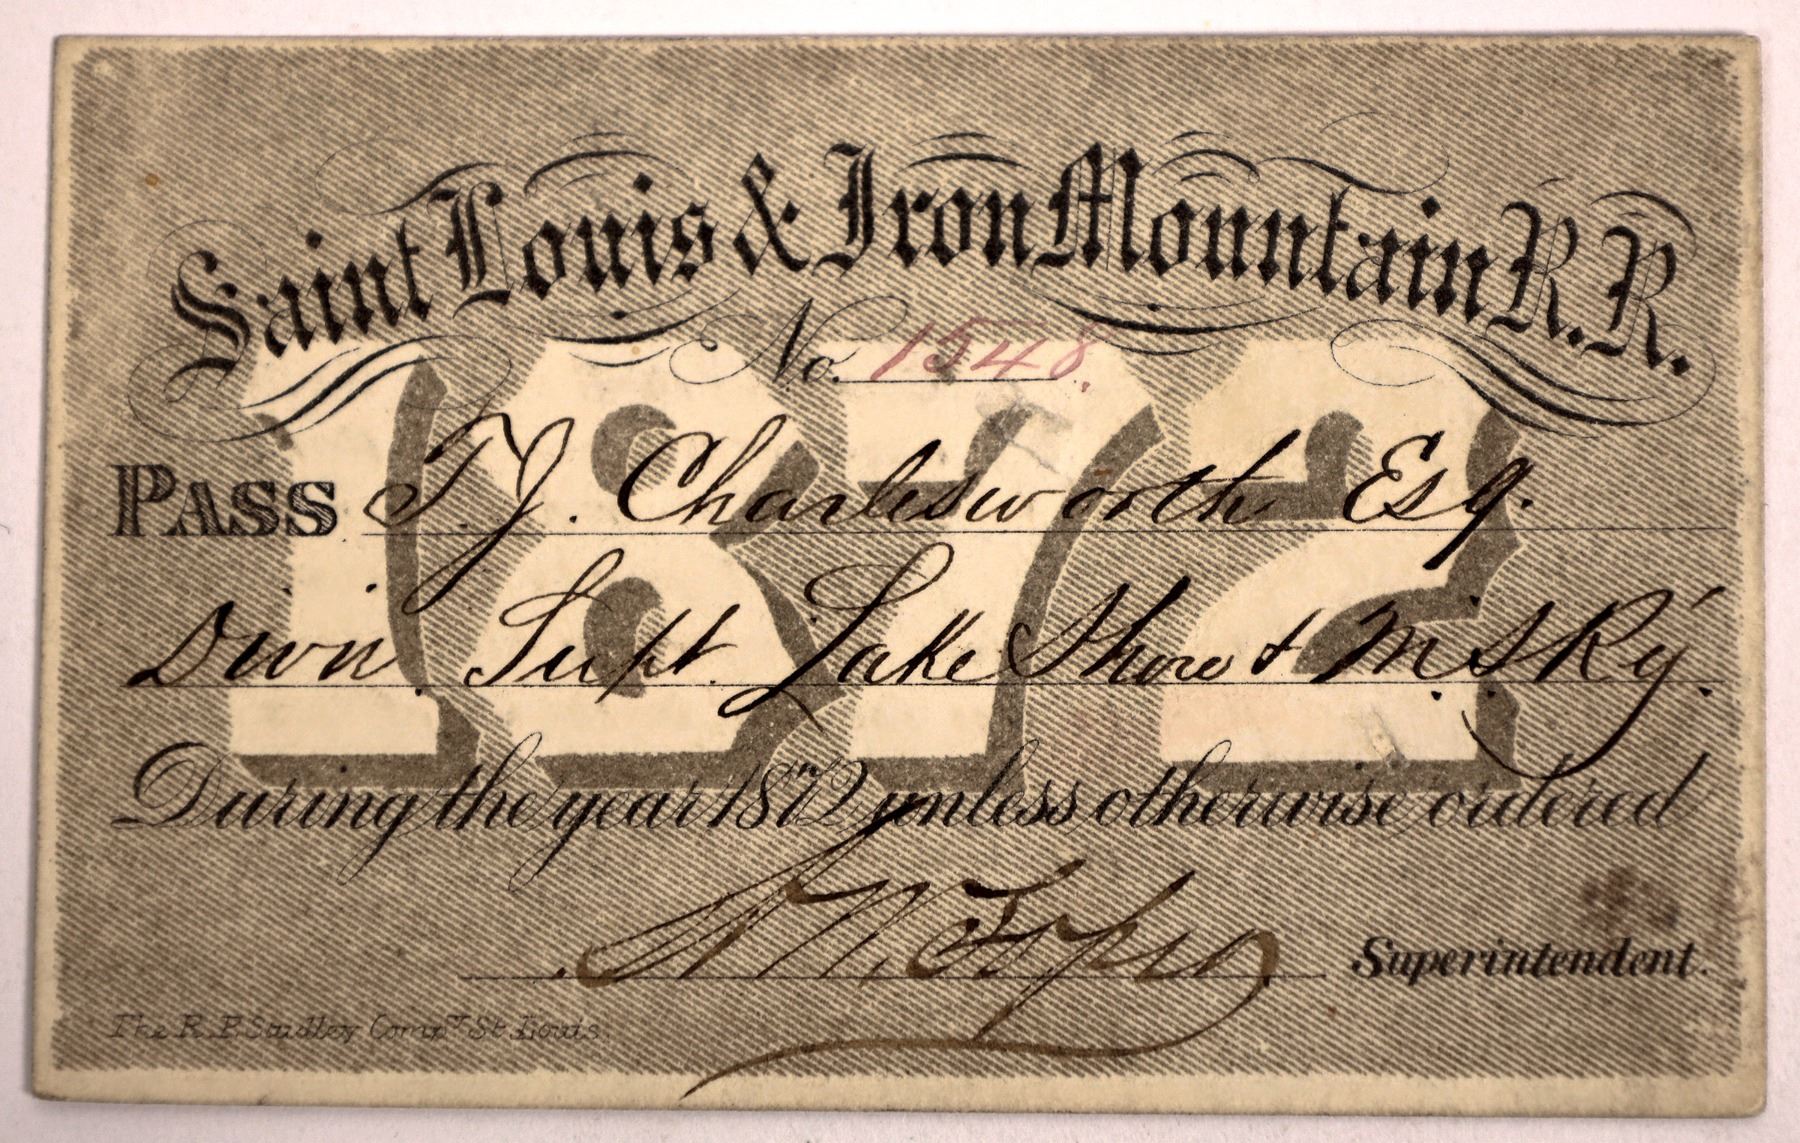 Saint Louis & Iron Mountain R.R.
No. 1548.
1872
PASS T.J. Charlesworth Esq.
Divn. Supt. Lake Shore & M.S. Ry.
During the year 1872 unless otherwise ordered
Superintendent.
The R.P. Studley Compy. St. Louis.